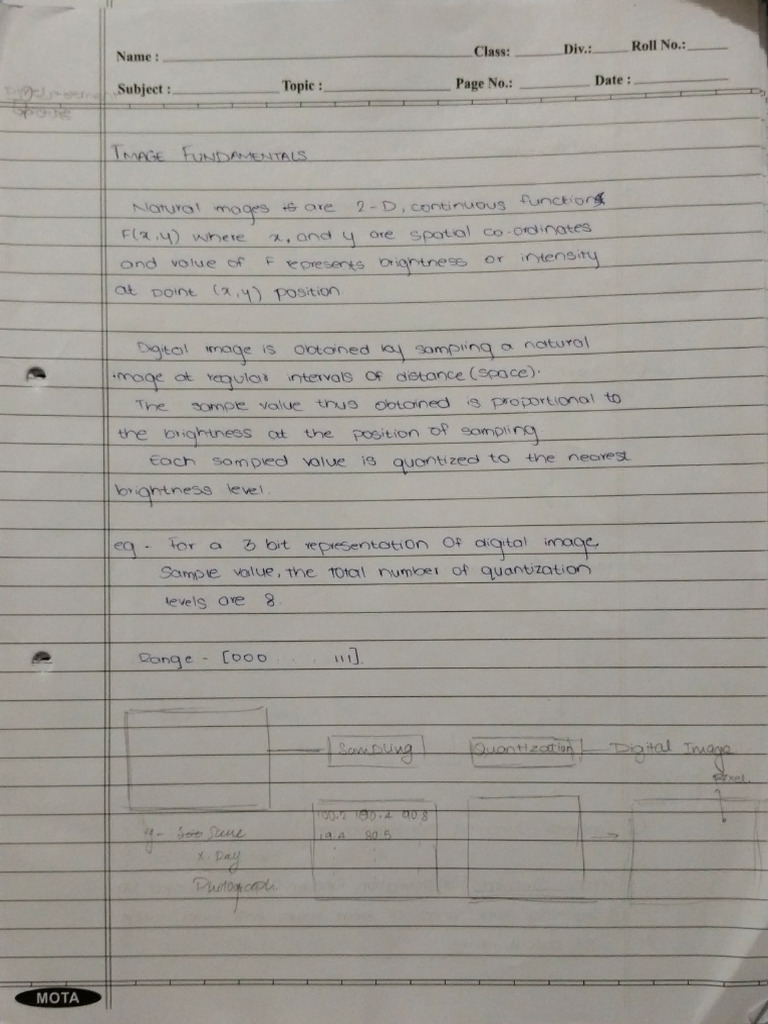 Name : Class: Div.: Roll No.:
Subject : Topic : Page No.: Date :
IMAGE FUNDAMENTALS
Natural images are 2-D, continuous functions
F(x,y) where x, and y are spatial co-ordinates
and value of F represents brightness or intensity
at point (x,y) position
Digital image is obtained by sampling a natural
image at regular intervals of distance (space).
The sample value thus obtained is proportional to
the brightness at the position of sampling
Each sampled value is quantized to the nearest
brightness level.
eg - For a 3 bit representation of digital image,
sample value, the total number of quantization
levels are 8.
Range - [000 . . . 111].
Sampling Quantization Digital Image
Pixel.
100.2 180.2 90.8
eg -
19.0 80.5
x. Day
Photograph.
MOTA